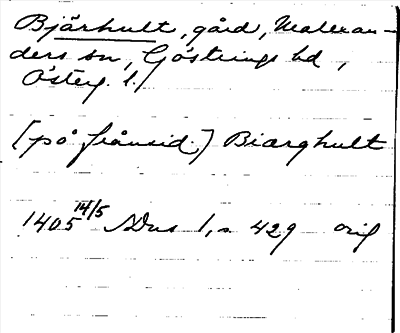 Bjärhult, gård, Malexan-
ders sn, Göstrings hd,
Österg. l.
[på frånsid.] Biærghult
1405 14/5 SDns 1, s 429 orig